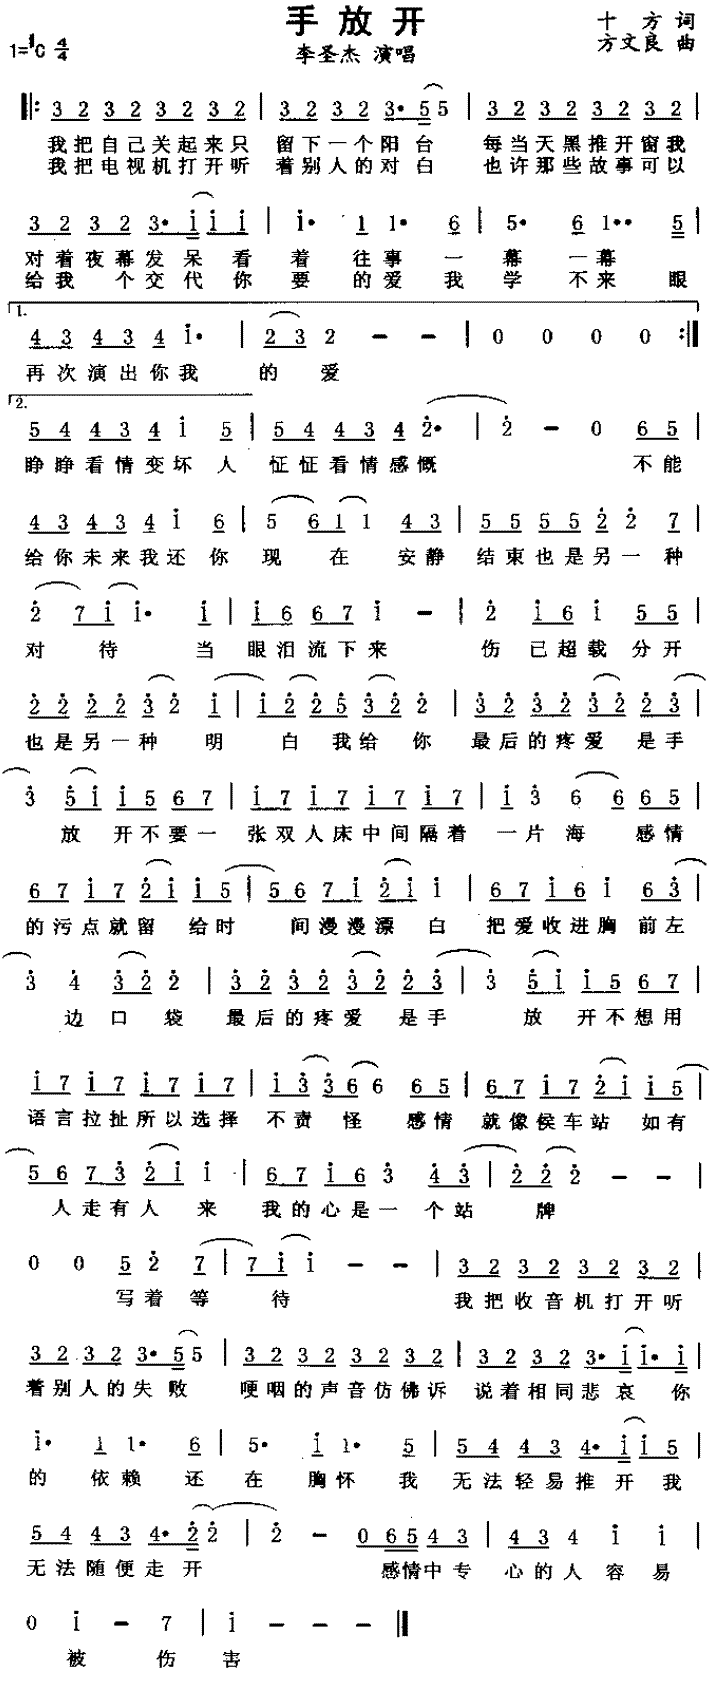 手放开
十方 词
1=♯C 4/4
李圣杰 演唱
方文良 曲
我把自己关起来只 留下一个阳台 每当天黑推开窗我
我把电视机打开听 着别人的对白 也许那些故事可以
对着夜幕发呆看着往事一幕一幕
给我个交代你要的爱我学不来眼
1.
再次演出你我的爱
2.
睁睁看情变坏人 怔怔看情感慨 不能
给你未来我还你现在 安静结束也是另一种
对待 当眼泪流下来 伤已超载 分开
也是另一种明白我给你 最后的疼爱是手
放开不要一张双人床中间隔着一片海 感情
的污点就留给时间漫漫漂白 把爱收进胸前左
边口袋 最后的疼爱是手放开不想用
语言拉扯所以选择不责怪 感情就像侯车站如有
人走有人来 我的心是一个站牌
写着等待 我把收音机打开听
着别人的失败 哽咽的声音仿佛诉说着相同悲哀你
的依赖还在胸怀我无法轻易推开我
无法随便走开 感情中专心的人容易
被伤害